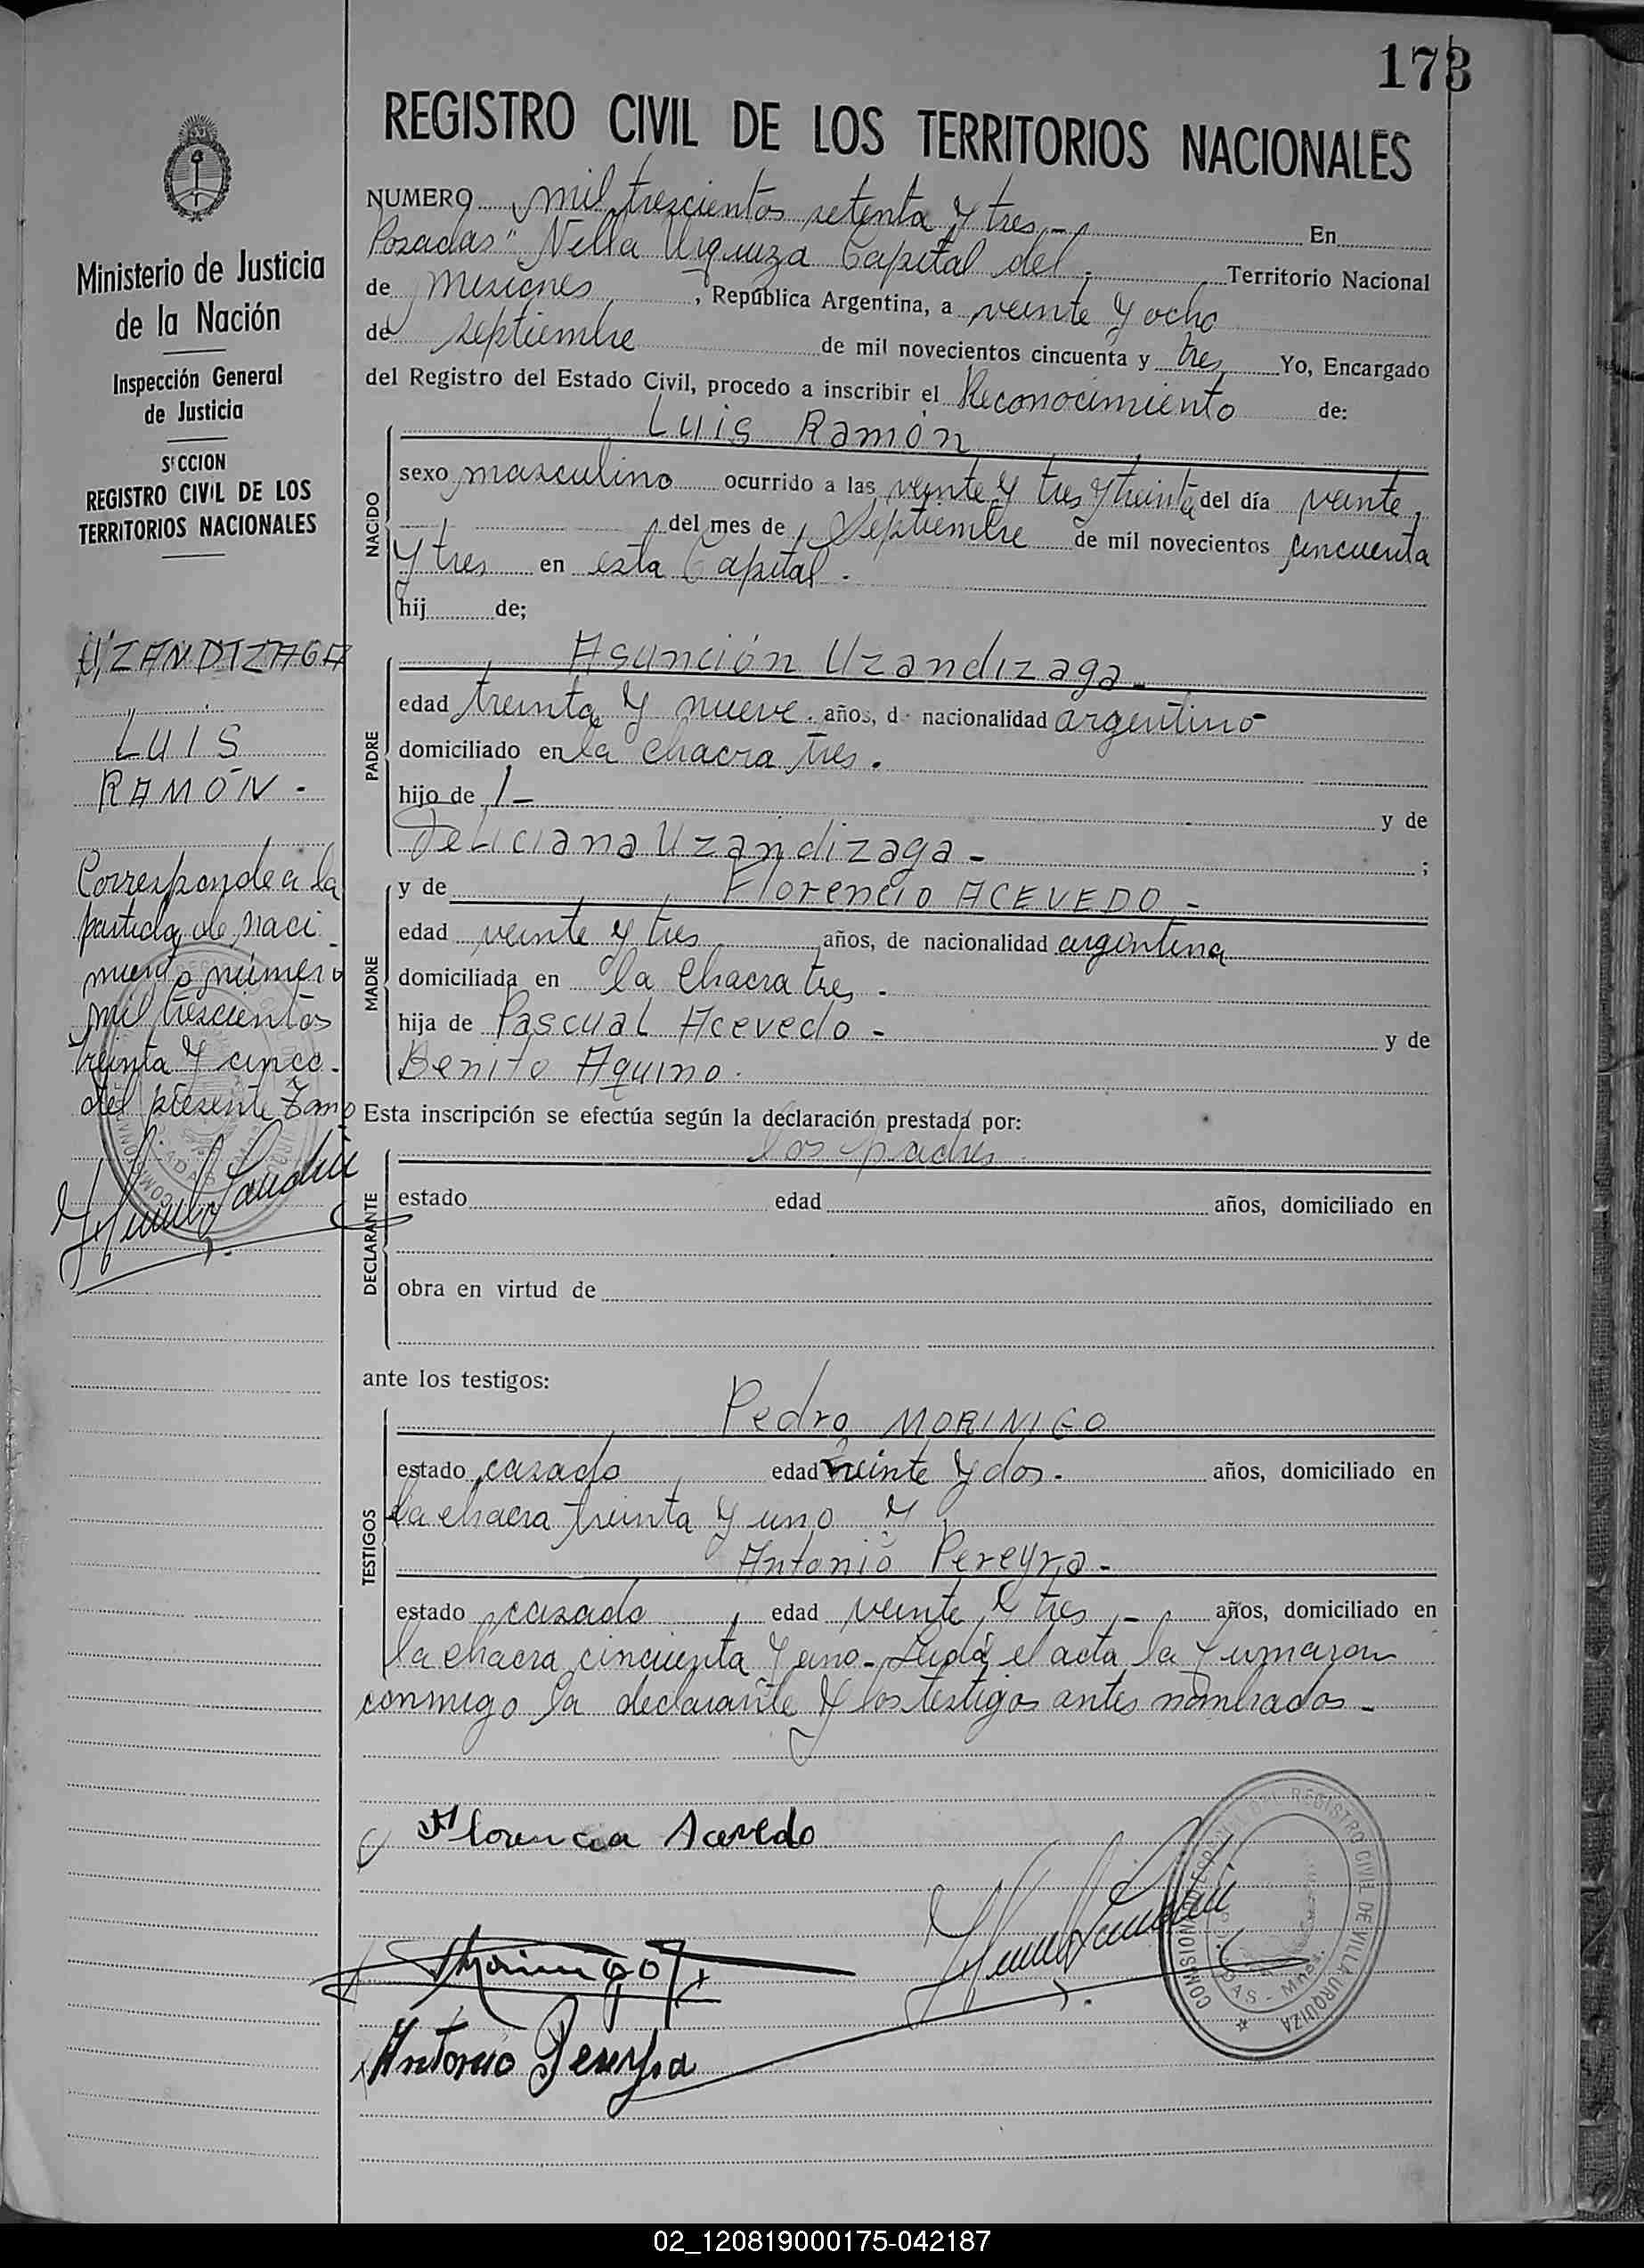 173
REGISTRO CIVIL DE LOS TERRITORIOS NACIONALES
Ministerio de Justicia
de la Nación
Inspección General
de Justicia
SECCION
REGISTRO CIVIL DE LOS
TERRITORIOS NACIONALES
UZANDIZAGA
LUIS
RAMÓN -
Corresponde a la
partida de naci
miento número
mil trescientos
treinta y cinco -
del presente Tomo
NUMERO mil trescientos setenta y tres - En
Posadas" Villa Urquiza Capital del Territorio Nacional
de Misiones, República Argentina, a veinte y ocho
de septiembre de mil novecientos cincuenta y tres Yo, Encargado
del Registro del Estado Civil, procedo a inscribir el Reconocimiento de:
NACIDO
Luis Ramón
sexo masculino ocurrido a las veinte y tres y treinta del día veinte
del mes de Septiembre de mil novecientos cincuenta
y tres en esta Capital.
hij de;
PADRE
Asunción Uzandizaga -
edad treinta y nueve. años, d nacionalidad argentino
domiciliado en la chacra tres.
hijo de y de
Feliciana Uzandizaga - ;
MADRE
y de Florencio ACEVEDO -
edad veinte y tres años, de nacionalidad argentina
domiciliada en la chacra tres.
hija de Pascual Acevedo - y de
Benito Aquino.
Esta inscripción se efectúa según la declaración prestada por:
DECLARANTE
los padres
estado edad años, domiciliado en
obra en virtud de
ante los testigos:
TESTIGOS
Pedro MORINIGO
estado casado edad veinte y dos. años, domiciliado en
la chacra treinta y uno y
Antonio Pereyra -
estado casado edad veinte y tres - años, domiciliado en
la chacra cincuenta y uno - Leída el acta la firmaron
conmigo la declarante y los testigos antes nombrados -
Florencia Acevedo
Antonio Pereyra
REGISTRO CIVIL DE VILLA URQUIZA
02_120819000175-042187